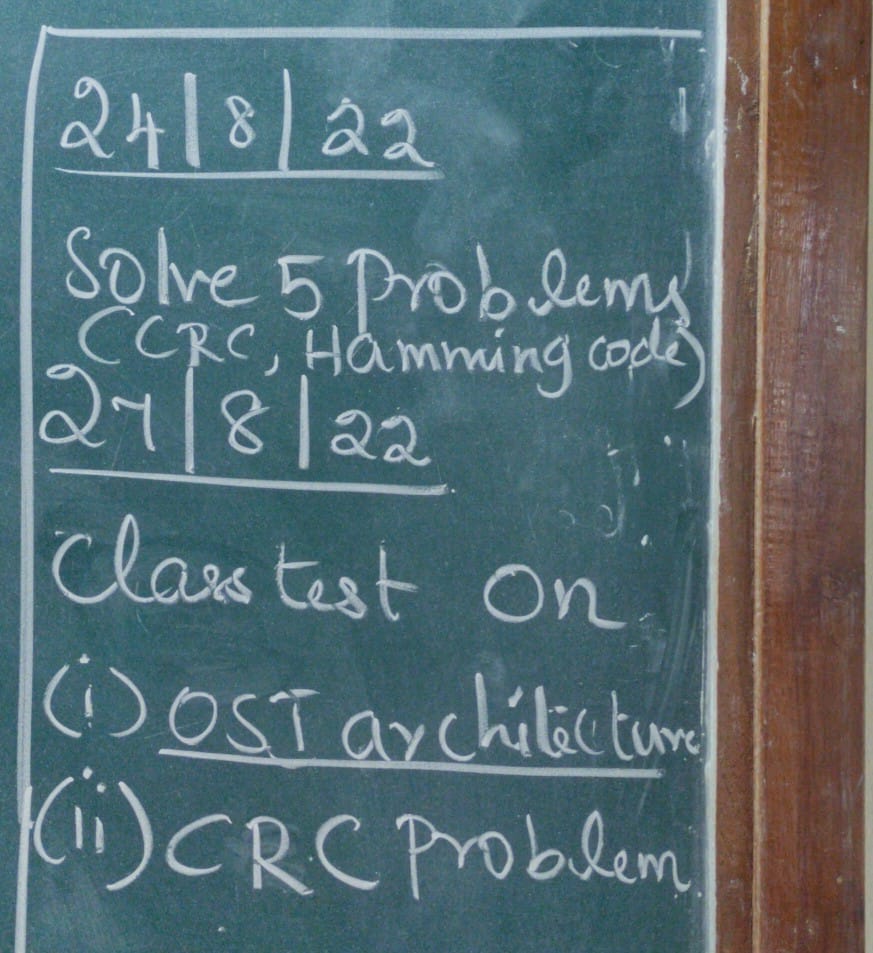 24|8|22
Solve 5 Problems
(CRC, Hamming code)
27|8|22
Class test on
(i) OSI architecture
(ii) CRC Problem.